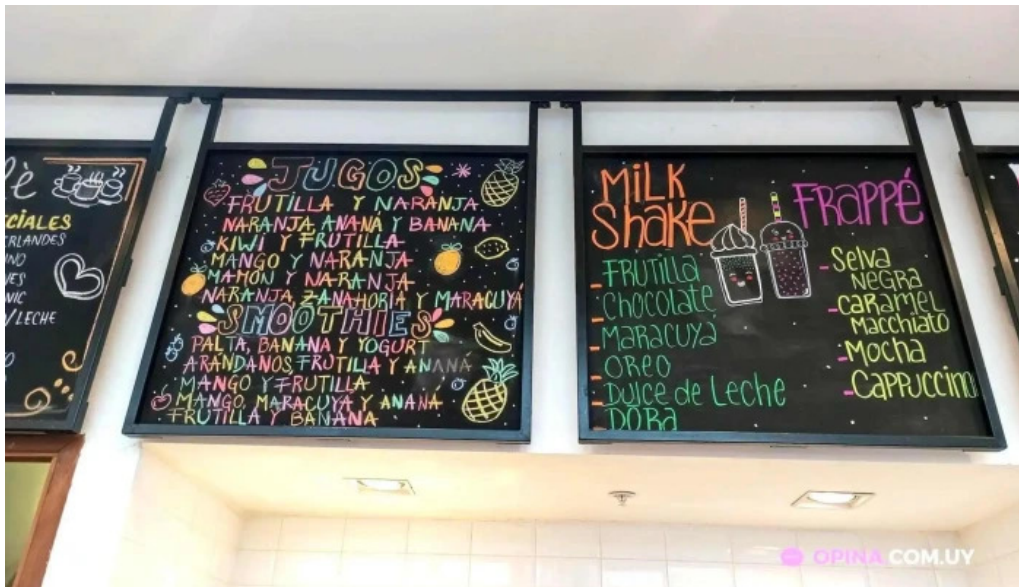 CIALES
ERLANDES
NIC
/LECHE
JUGOS
FRUTILLA Y NARANJA
NARANJA, ANANÁ Y BANANA
KIWI Y FRUTILLA
MANGO Y NARANJA
MAMÓN Y NARANJA
NARANJA, ZANAHORIA Y MARACUYÁ
SMOOTHIES
PALTA, BANANA Y YOGURT
ARÁNDANOS, FRUTILLA Y ANANÁ
MANGO Y FRUTILLA
MANGO, MARACUYA Y ANANA
FRUTILLA Y BANANA
MiLK
Shake
FRUTilla
Chocolate
MaRacuyá
OReo
Dulce de Leche
DORa
FRappé
Selva
NeGRa
CaRaMeL
Macchiato
Mocha
Cappuccino
OPINA.COM.UY